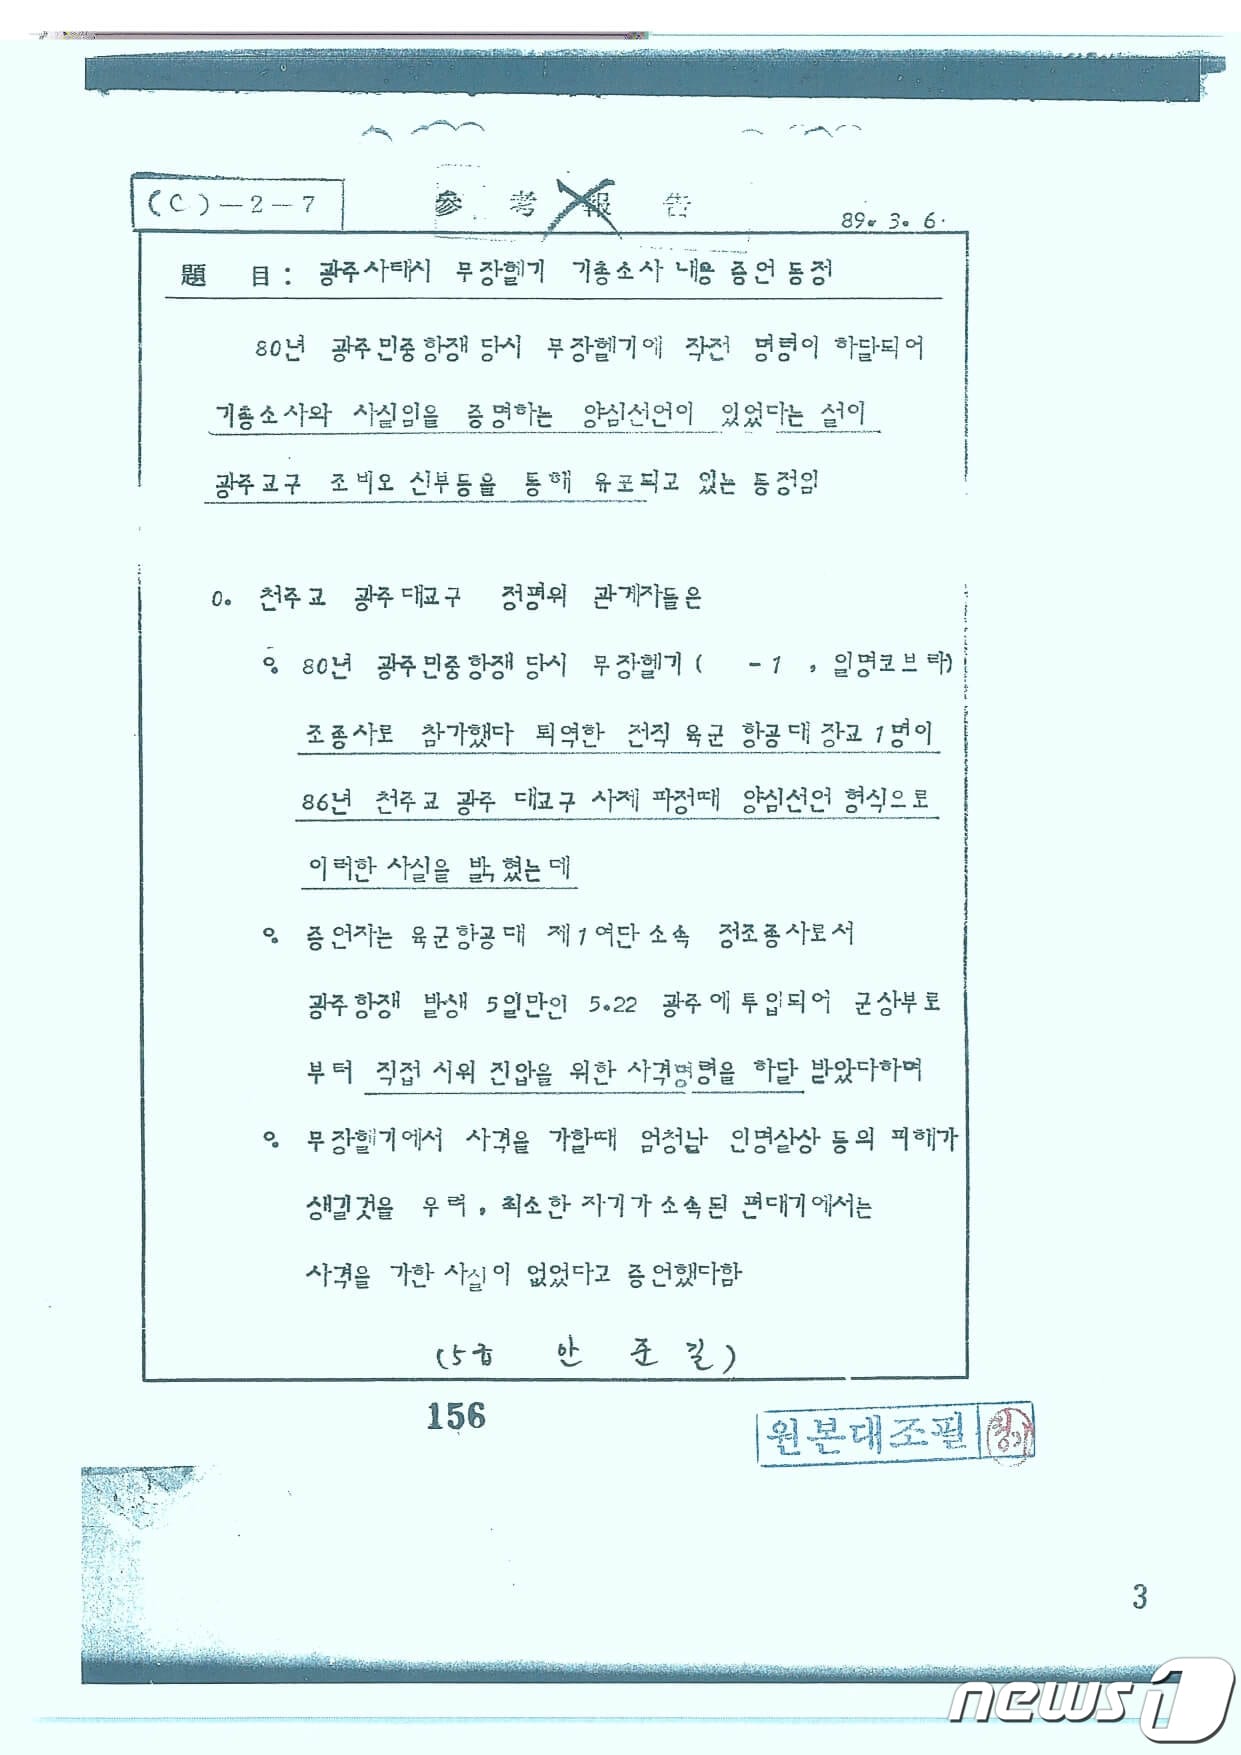 (C)-2-7
參考報告
89. 3. 6.
題 目: 광주사태시 무장헬기 기총소사 내용 증언 동정
80년 광주민중항쟁 당시 무장헬기에 작전 명령이 하달되어
기총소사와 사실임을 증명하는 양심선언이 있었다는 설이
광주교구 조비오 신부등을 통해 유포되고 있는 동정임
0. 천주교 광주대교구 정평위 관계자들은
o. 80년 광주민중항쟁 당시 무장헬기( -1 , 일명코브라)
조종사로 참가했다 퇴역한 전직 육군 항공대 장교 1명이
86년 천주교 광주 대교구 사제 파정때 양심선언 형식으로
이러한 사실을 밝혔는데
o. 증언자는 육군항공대 제1여단소속 정조종사로서
광주항쟁 발생 5일만인 5.22 광주에 투입되어 군상부로
부터 직접 시위 진압을 위한 사격명령을 하달 받았다하며
o. 무장헬기에서 사격을 가할때 엄청난 인명살상 등의 피해가
생길것을 우려, 최소한 자기가 소속된 편대기에서는
사격을 가한 사실이 없었다고 증언했다함
(5급 안 준 길)
156
원본대조필
3
news1